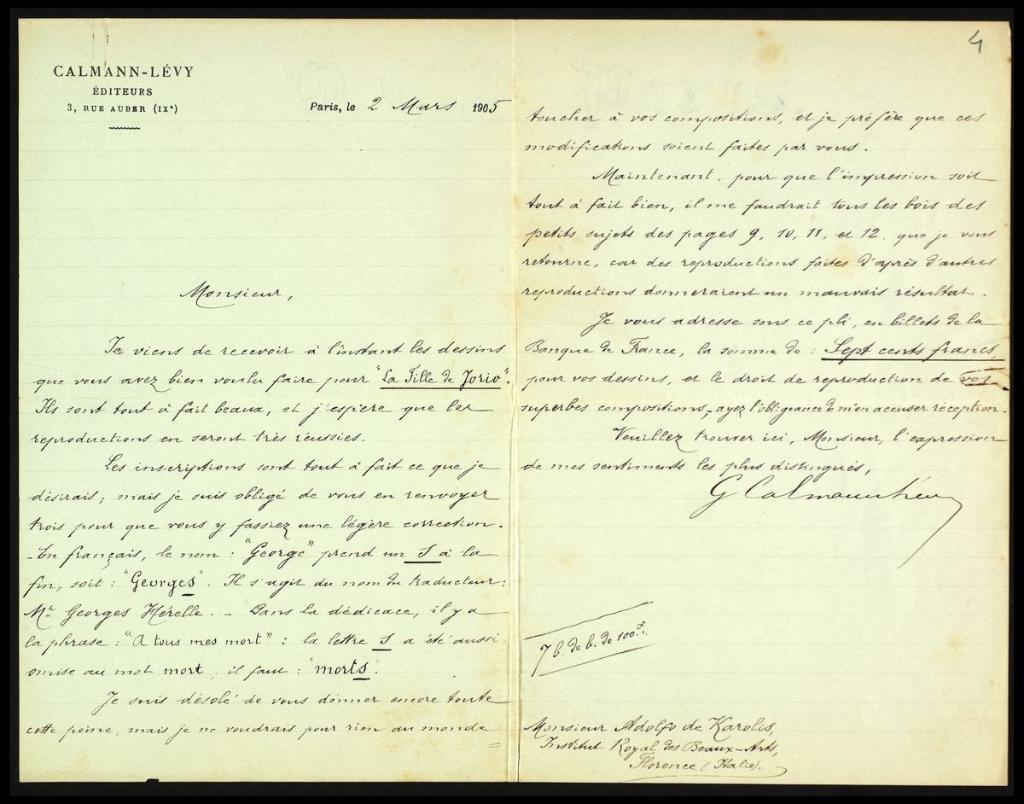 CALMANN-LÉVY
ÉDITEURS
3, RUE AUBER (IXe)
Paris, le 2 Mars 1905
Monsieur,
Je viens de recevoir à l'instant les dessins
que vous avez bien voulu faire pour "La Fille de Jorio".
Ils sont tout à fait beaux, et j'espère que les
reproductions en seront très réussies.
Les inscriptions sont tout à fait ce que je
désirais; mais je suis obligé de vous en renvoyer
trois pour que vous y fassiez une légère correction.
- En français, le nom: "George" prend un S à la
fin, soit: "Georges". Il s'agit du nom du traducteur:
Mr. Georges Hérelle. - Dans la dédicace, il y a
la phrase: "A tous mes mort": la lettre S a été aussi
omise au mot mort, il faut: "morts".
Je suis désolé de vous donner encore toute
cette peine, mais je ne voudrais pour rien au monde
4
toucher à vos compositions, et je préfère que ces
modifications soient faites par vous.
Maintenant, pour que l'impression soit
tout à fait bien, il me faudrait tous les bois des
petits sujets des pages 9, 10, 11, et 12, que je vous
retourne, car des reproductions faites d'après d'autres
reproductions donneraient un mauvais résultat.
Je vous adresse sous ce pli, en billets de la
Banque de France, la somme de: Sept cents francs,
pour vos dessins, et le droit de reproduction de vos
superbes compositions, ayez l'obligeance de m'en accuser réception.
Veuillez trouver ici, Monsieur, l'expression
de mes sentiments les plus distingués,
G Calmann Lévy
7 b. de b. de 100 f.
Monsieur Adolfo de Karolis,
Institut Royal des Beaux-Arts,
Florence (Italie).